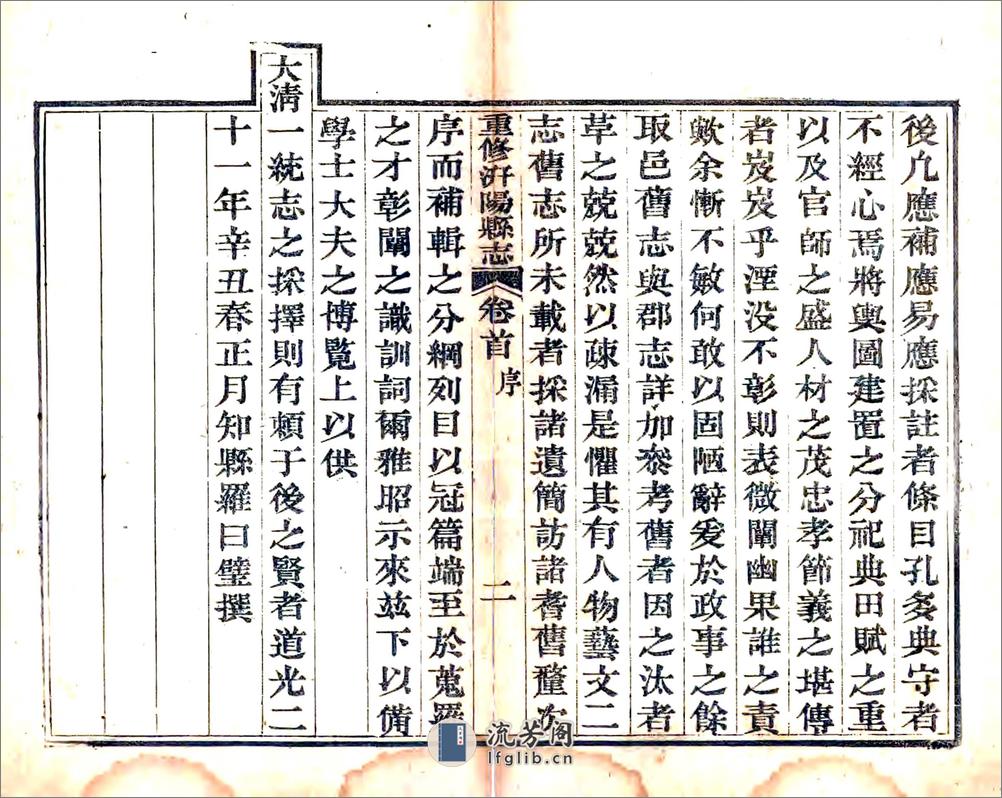 後凡應補應易應採註者條目孔多典守者
不經心焉將輿圖建置之分祀典田賦之重
以及官師之盛人材之茂忠孝節義之堪傳
者岌岌乎湮没不彰則表微闡幽果誰之責
歟余慚不敏何敢以固陋辭爰於政事之餘
取邑舊志與郡志詳加叅考舊者因之汰者
革之兢兢然以疎漏是懼其有人物藝文二
志舊志所未載者採諸遺簡訪諸耆舊釐次
重修汧陽縣志 卷首 序 二
序而補輯之分綱列目以冠篇端至於蒐羅
之才彰闡之識訓詞爾雅昭示來茲下以備
學士大夫之博覧上以供
大清一統志之採擇則有頼于後之賢者道光二
十一年辛丑春正月知縣羅曰璧撰
流芳阁
lfglib.cn